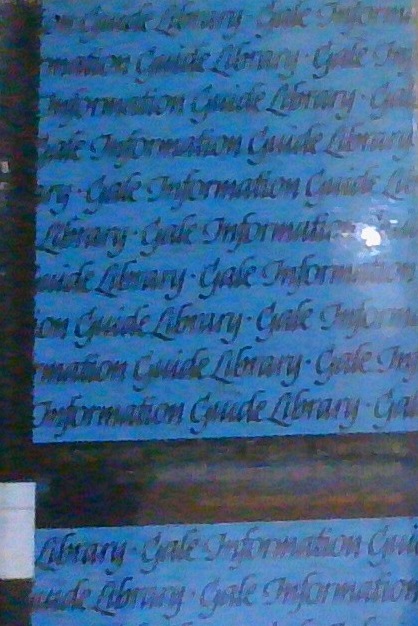 on Guide Library · Gale Informa
rmation Guide Library · Gale In
Information Guide Library · Gal
Gale Information Guide Library
ry · Gale Information Guide Li
Library · Gale Information
uide Library · Gale Information
ion Guide Library · Gale Inform
rmation Guide Library · Gale In
Information Guide Library · Gal
Library · Gale Information Gui
uide Library · Gale Information